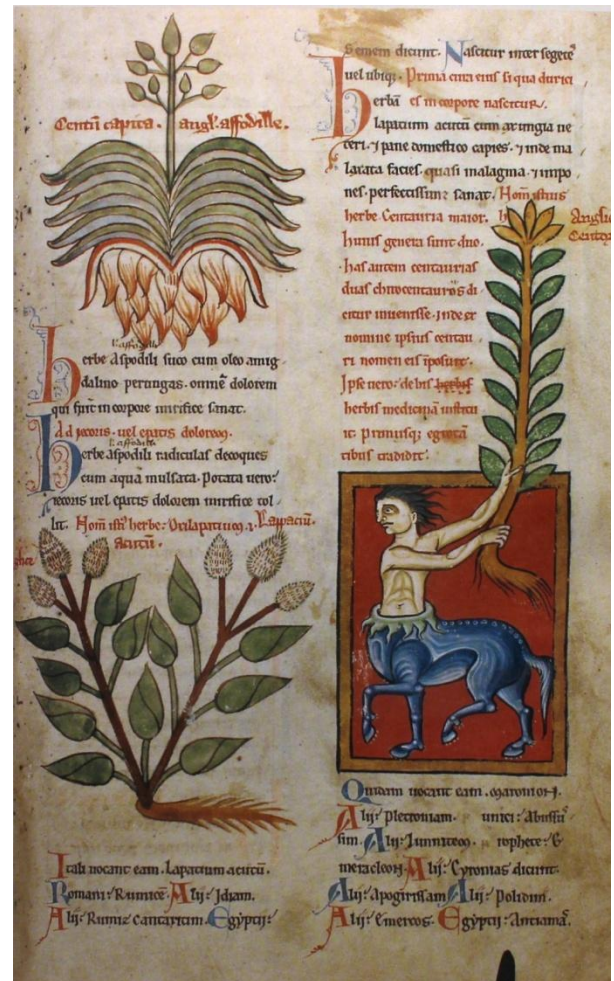 Centū capita. angł. affodille.
l'affodille
Herbe Aspodili suco cum oleo amig-
dalino perungas. omnē dolorem
qui sunt in corpore mirifice sanat.
Ad jecoris. uel epatis dolorem.
l'affodille
Herbe aspodili radiculas decoques
cum aqua mulsata. Potata uero:
jecoris uel epatis dolorem mirifice tol-
lit. Hom̄ isti herbe: Oxilapatium. i. Lappaciū.
acutū.
Itali uocant eam. Lapatium acutū.
Romani: Rumicē. Alij: Jdiam.
Alij: Rumic cantaricum. Egyptij:
semem dicunt. Nascitur inter segetes
uel ubiq;. Prima cura eius si qua durici
es in corpore nascitur.
Herbā lapatium acutū cum axungia ue
teri. ⁊ pane domestico capies. ⁊ inde ma
laxata facies. quasi malagma. ⁊ impo
nes. perfectissime sanat. Hom̄ istius
herbe. Centauria maior.
Anglic
Centor
huius genera sunt duo.
has autem centaurias
duas chirocentaurus di-
citur inuenisse. jnde et
nomine ipsius centau-
ri nomen eis īposuit.
Jpse uero: de his herbis
herbis medicinā institu
it. primusq; egrotā
tibus tradidit.
Quidam uocant eam. Maronion.
Alij: Plectroniam. unici: Abussū
sim. Alij: Limniteon. rophete: E
meracleon. Alij: Cyronias dicunt.
Alij: Apogirissam Alij: Polidim.
Alij: Emereos. Egyptij: Anciamā.